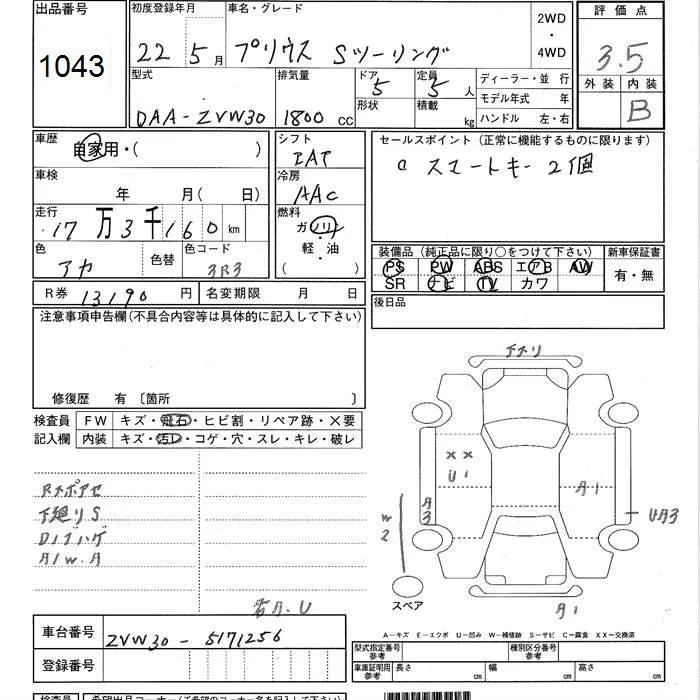 出品番号
1043
初度登録年月
22 5月
車名・グレード
プリウス Sツーリング
2WD
・
4WD
評価点
3.5
外装 内装
B
型式
DAA-ZVW30
排気量
1800 CC
ドア 5
形状
定員 5 人
積載 kg
ディーラー・並行
モデル年式 年
ハンドル 左・右
車歴
自家用・( )
シフト
IAT
車検
年 月( 日)
冷房
AAC
走行
17万3千160 km
燃料
ガソリン
軽・油
( )
色
アカ
色替
色コード
3R3
R券 13190円
名変期限 月 日
セールスポイント(正常に機能するものに限ります)
スマートキー2個
装備品(純正品に限り○をつけて下さい)
PS PW ABS エアB AW
SR ナビ TV カワ
新車保証書
有・無
後日品
注意事項申告欄(不具合内容等は具体的に記入して下さい)
修復歴 有 〔箇所 〕
検査員
記入欄
FW キズ・飛石・ヒビ割・リペア跡・×要
内装 キズ・汚レ・コゲ・穴・スレ・キレ・破レ
下廻りS
A1W.A
A.U
下スリ
××
U1
A1
A3
W2
UA3
A1
スペア
A-キズ E-エクボ U-凹み W-補修跡 S-サビ C-腐食 XX-交換済
車台番号 ZVW30-5171256
登録番号
型式指定番号
参考
種別区分番号
参考
車庫証明用
参考
長さ cm 幅 cm 高さ cm